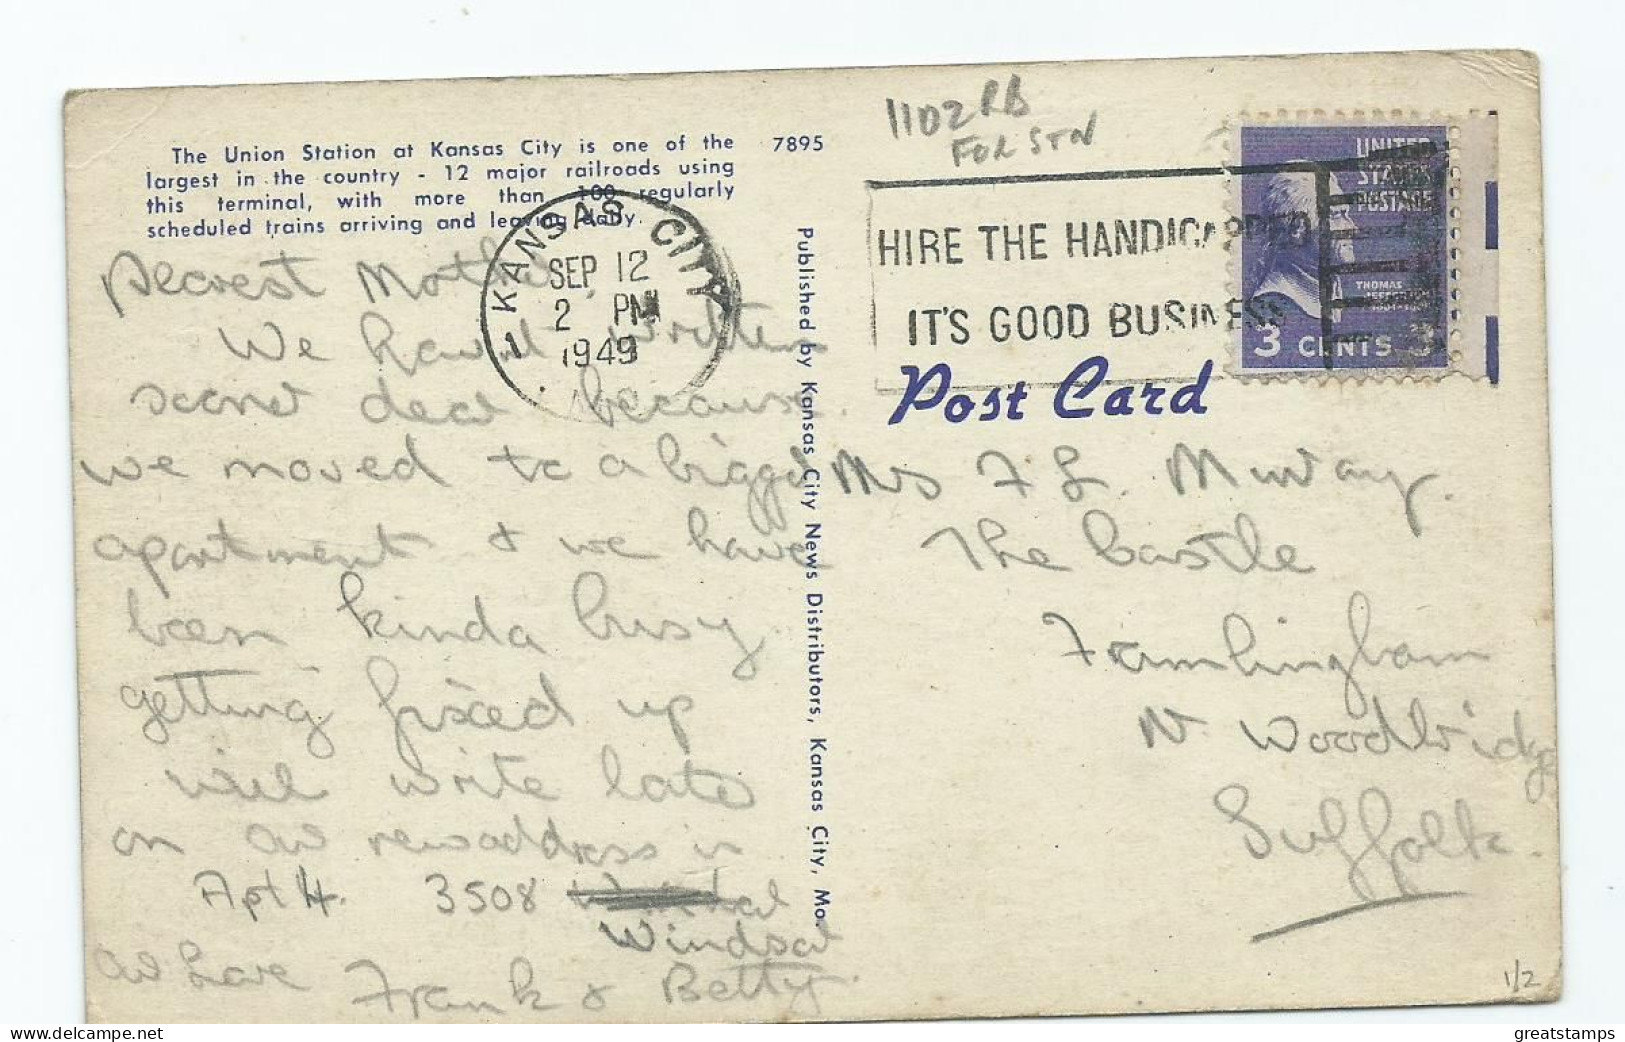 The Union Station at Kansas City is one of the
largest in the country - 12 major railroads using
this terminal, with more than 100 regularly
scheduled trains arriving and leaving daily.
7895
1102 RB
FOR STN
KANSAS CITY
SEP 12
2 PM
1949
HIRE THE HANDICAPPED
IT'S GOOD BUSINESS
UNITED
STATES
POSTAGE
THOMAS
JEFFERSON
3 CENTS 3
Post Card
Published by Kansas City News Distributors, Kansas City, Mo.
Dearest Mother
We havent written
sooner dear because
we moved to a bigger
apartment & we have
been kinda busy
getting fixed up
will write later
on our new address is
Apt 4. 3508
Windsor
our Love Frank & Betty.
Mrs F L. Murray.
The Castle
Framlingham
Nr Woodbridge
Suffolk.
1/2
greatstamps
www.delcampe.net